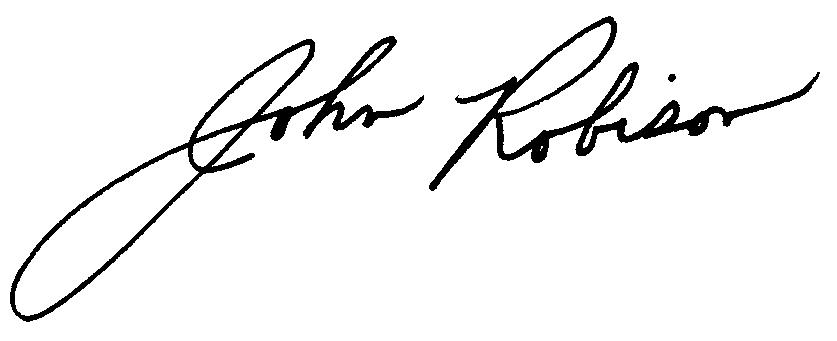 John Robison